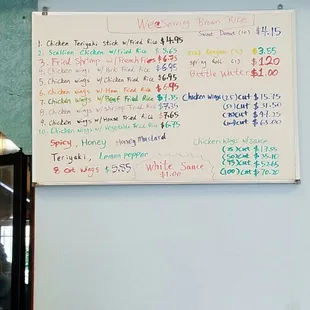 We Serving Brown Rice
Sweet Donut (10) $4.15
1. Chicken Teriyaki Stick w/Fried Rice $4.95
2. Scallion Chicken w/Fried Rice $5.65
3. Fried Shrimp w/French Fries $6.75
4. Chicken wings w/Pork Fried Rice $6.95
5. Chicken wings w/Chicken Fried Rice $6.95
6. Chicken wings w/Ham Fried Rice $6.95
7. Chicken wings w/Beef Fried Rice $7.35
8. Chicken wings w/Shrimp Fried Rice $7.35
9. Chicken wings w/House Fried Rice $7.65
10. Chicken wings w/Vegetable Fried Rice $6.75
(10) $3.55
spring roll (1) $1.20
Bottle Water $1.00
Chicken Wings (25) Cut $15.75
(50) Cut $31.50
Cut $47.25
Cut $63.00
Spicy, Honey Honey Mustard
Teriyaki, Lemon pepper
8 cut wings $5.55
White Sauce
$1.00
Chicken Wings w/Sauce
(25) Cut $17.55
(50) Cut $35.10
(75) Cut $52.65
(100) Cut $70.20